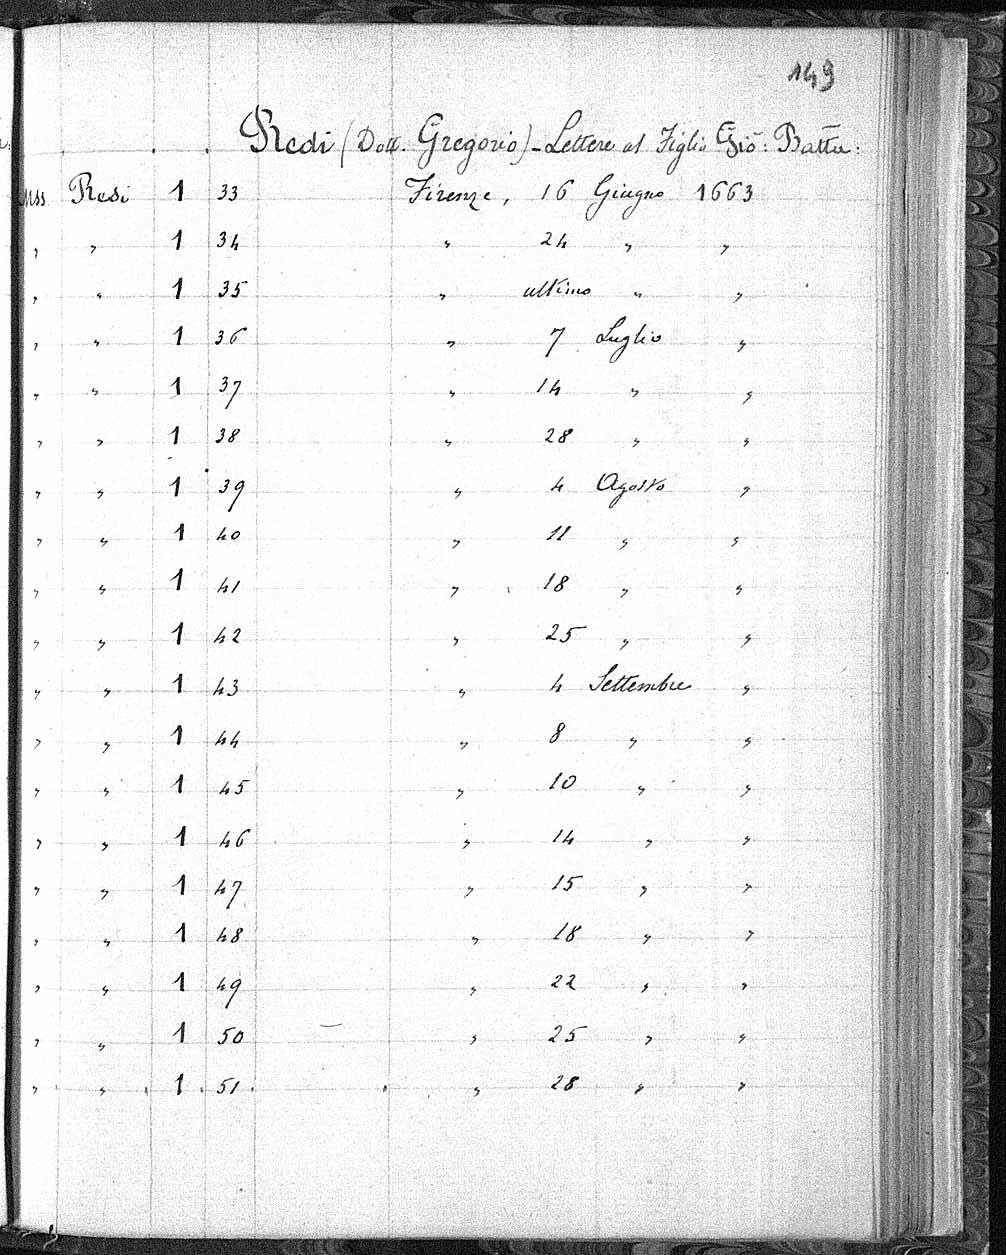 149
Redi (Dott. Gregorio) - Lettere al Figlio Gio: Batta:
Mss Redi 1 33 Firenze, 16 Giugno 1663
" " 1 34 " 24 " "
" " 1 35 " ultimo " "
" " 1 36 " 7 Luglio "
" " 1 37 " 14 " "
" " 1 38 " 28 " "
" " 1 39 " 4 Agosto "
" " 1 40 " 11 " "
" " 1 41 " 18 " "
" " 1 42 " 25 " "
" " 1 43 " 4 Settembre "
" " 1 44 " 8 " "
" " 1 45 " 10 " "
" " 1 46 " 14 " "
" " 1 47 " 15 " "
" " 1 48 " 18 " "
" " 1 49 " 22 " "
" " 1 50 " 25 " "
" " 1 51 " 28 " "